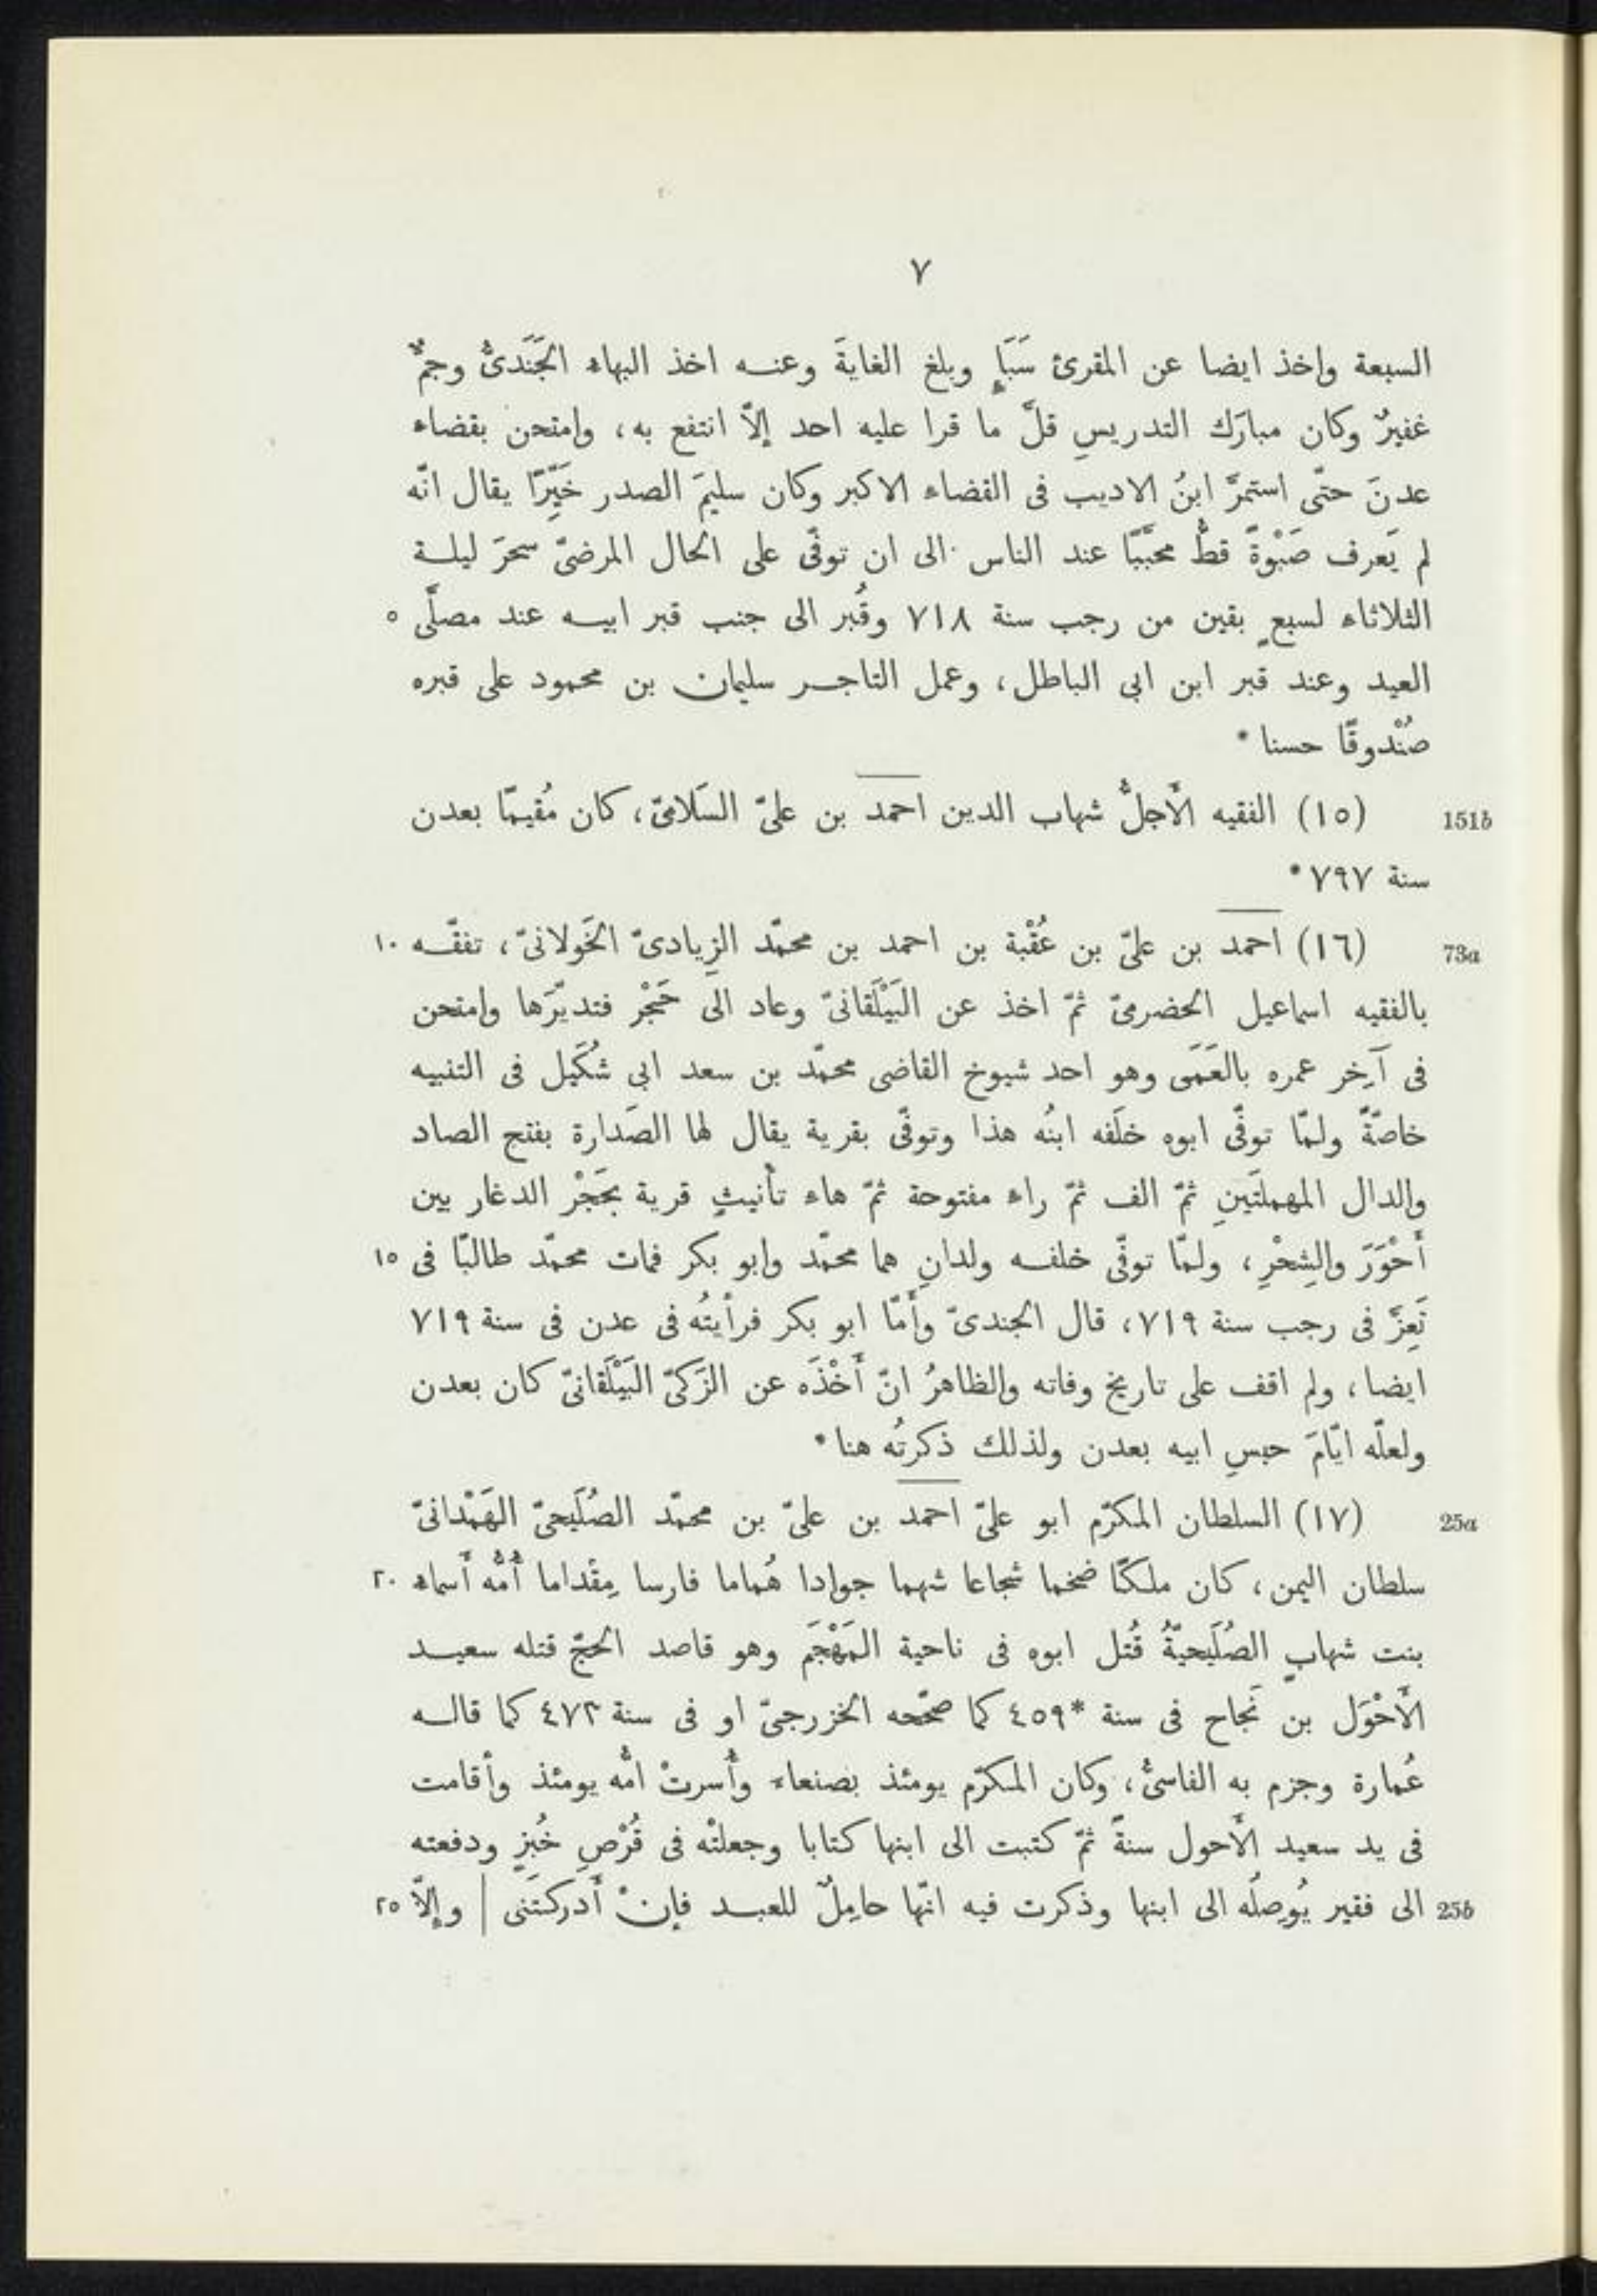 ٧
السبعة واخذ ايضا عن المقرئ سَبَاٍ وبلغ الغايةَ وعنه اخذ البهاء الجَنَدىُّ وجمٌّ
غفيرٌ وكان مبارَك التدريسِ قلَّ ما قرا عليه احد إلاّ انتفع به، وامتحن بقضاء
عدنَ حتّى استمرَّ ابنُ الاديب فى القضاء الاكبر وكان سليمَ الصدر خَيِّرًا يقال انّه
لم يَعرف صَبْوةً قطُّ محبَّبًا عند الناس الى ان توفّى على الحال المرضىّ سحرَ ليلة
الثلاثاء لسبعٍ بقين من رجب سنة ٧١٨ وقُبر الى جنب قبر ابيه عند مصلَّى ٥
العيد وعند قبر ابن ابى الباطل، وعمل التاجر سليمان بن محمود على قبره
صُنْدوقًا حسنا *
151b (١٥) الفقيه الأجلُّ شهاب الدين احمد بن علىّ السَلامىّ، كان مُقيمًا بعدن
سنة ٧٩٧ *
73a (١٦) احمد بن علىّ بن عُقْبة بن احمد بن محمّد الزيادىّ الخَولانىّ، تفقّه ١٠
بالفقيه اسماعيل الحضرمىّ ثمّ اخذ عن البَيْلَقانىّ وعاد الى حَجْر فتديّرَها وامتحن
فى آخِر عمره بالعَمَى وهو احد شيوخ القاضى محمّد بن سعد ابى شُكَيل فى التنبيه
خاصّةً ولمّا توفّى ابوه خلَفه ابنُه هذا وتوفّى بقرية يقال لها الصَدارة بفتح الصاد
والدال المهملتَينِ ثمّ الف ثمّ راء مفتوحة ثمّ هاء تأنيثٍ قرية بحَجْر الدغار بين
أَحْوَرَ والشِحْرِ، ولمّا توفّى خلفه ولدانِ هما محمّد وابو بكر فمات محمّد طالبًا فى ١٥
تَعِزَّ فى رجب سنة ٧١٩، قال الجندىّ وأمّا ابو بكر فرأيتُه فى عدن فى سنة ٧١٩
ايضا، ولم اقف على تاريخ وفاته والظاهرُ انّ أَخْذَه عن الزَكىّ البَيْلَقانىّ كان بعدن
ولعلّه ايّامَ حبسِ ابيه بعدن ولذلك ذكرتُه هنا *
25a (١٧) السلطان المكرّم ابو علىّ احمد بن علىّ بن محمّد الصُلَيحىّ الهَمْدانىّ
سلطان اليمن، كان ملكًا ضخما شجاعا شهما جوادا هُماما فارسا مِقْداما أُمُّه أسماء ٢٠
بنت شهابٍ الصُلَيحيّةُ قُتل ابوه فى ناحية المَهْجَم وهو قاصد الحجّ قتله سعيد
الأَحْوَل بن نَجاح فى سنة *٤٥٩ كما صحّحه الخزرجىّ او فى سنة ٤٧٣ كما قاله
عُمارة وجزم به الفاسىُّ، وكان المكرّم يومئذ بصنعاء وأُسرتْ امُّه يومئذ وأقامت
فى يد سعيد الأحول سنةً ثمّ كتبت الى ابنها كتابا وجعلتْه فى قُرْصِ خُبزٍ ودفعته
25b الى فقير يُوصِلُه الى ابنها وذكرت فيه انّها حامِلٌ للعبد فإنْ أَدركتَنى | وإلاّ ٢٥